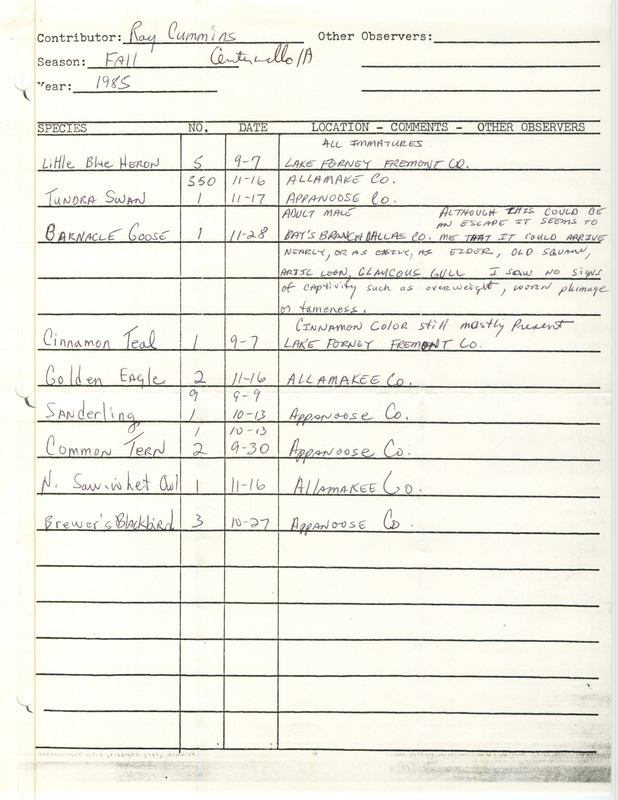 Contributor: Ray Cummins Other Observers:
Season: FALL Centerville/IA
Year: 1985
SPECIES NO. DATE LOCATION - COMMENTS - OTHER OBSERVERS
ALL IMMATURES
Little Blue Heron 5 9-7 LAKE FORNEY FREMONT CO.
350 11-16 ALLAMAKE CO.
TUNDRA SWAN 1 11-17 APPANOOSE CO.
ADULT MALE ALTHOUGH THIS COULD BE
AN ESCAPE IT SEEMS TO
BARNACLE GOOSE 1 11-28 RAY'S BRANCH DALLAS CO. ME THAT IT COULD ARRIVE
NEARLY, OR AS EASILY, AS EIDER, OLD SQUAW,
ARTIC LOON, GLAUCOUS GULL I SAW NO SIGNS
of captivity such as overweight, worn plumage
or tameness.
CINNAMON COLOR still mostly Present
Cinnamon Teal 1 9-7 LAKE FORNEY FREMONT CO.
Golden Eagle 2 11-16 ALLAMAKEE CO.
9 9-9
Sanderling 1 10-13 Appanoose Co.
1 10-13
Common Tern 2 9-30 Appanoose Co.
N. Saw-whet Owl 1 11-16 Allamakee Co.
Brewer's Blackbird 3 10-27 Appanoose Co